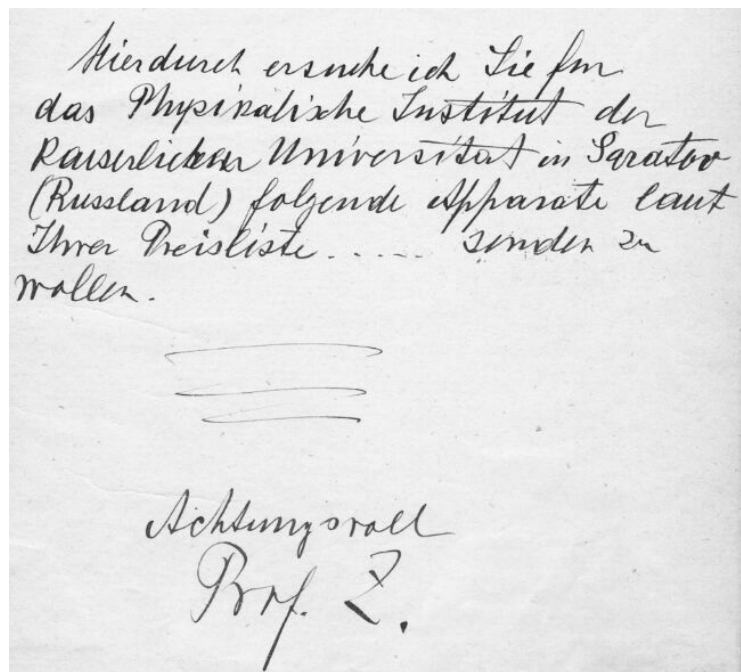 Hierdurch ersuche ich Sie für
das Physikalische Institut der
Kaiserlichen Universität in Saratow
(Russland) folgende Apparate laut
Ihrer Preisliste..... senden zu
wollen.
Achtungsvoll
Prof. Z.